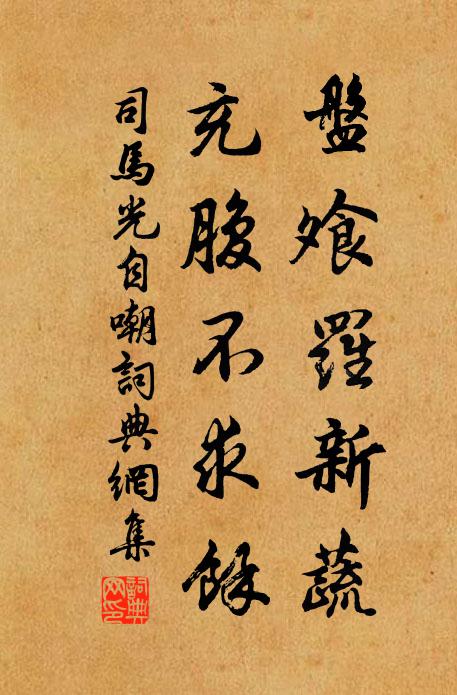 盤飧羅新蔬
充腹不求餘
司馬光自嘲詞典網集
詞典网印